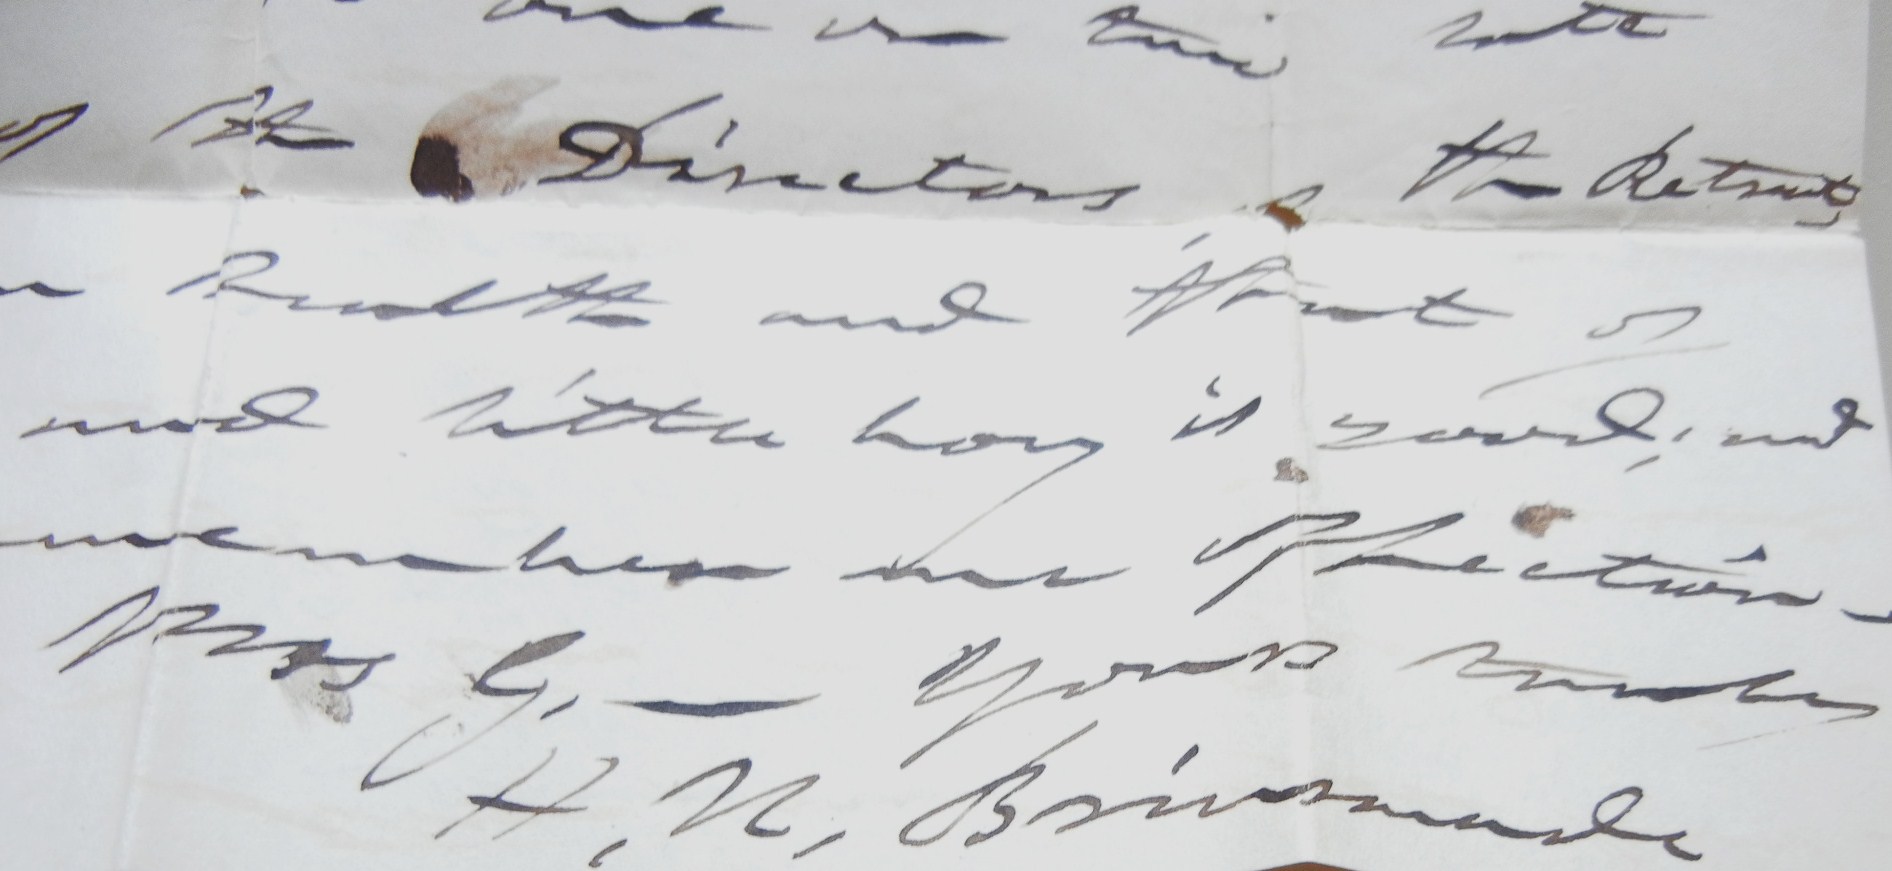 one or two
of the Directors of the Retreat
health and that of
and little boy is good, and
remember me affection-
Mrs G. — Yours truly
H. N. Brinsmade